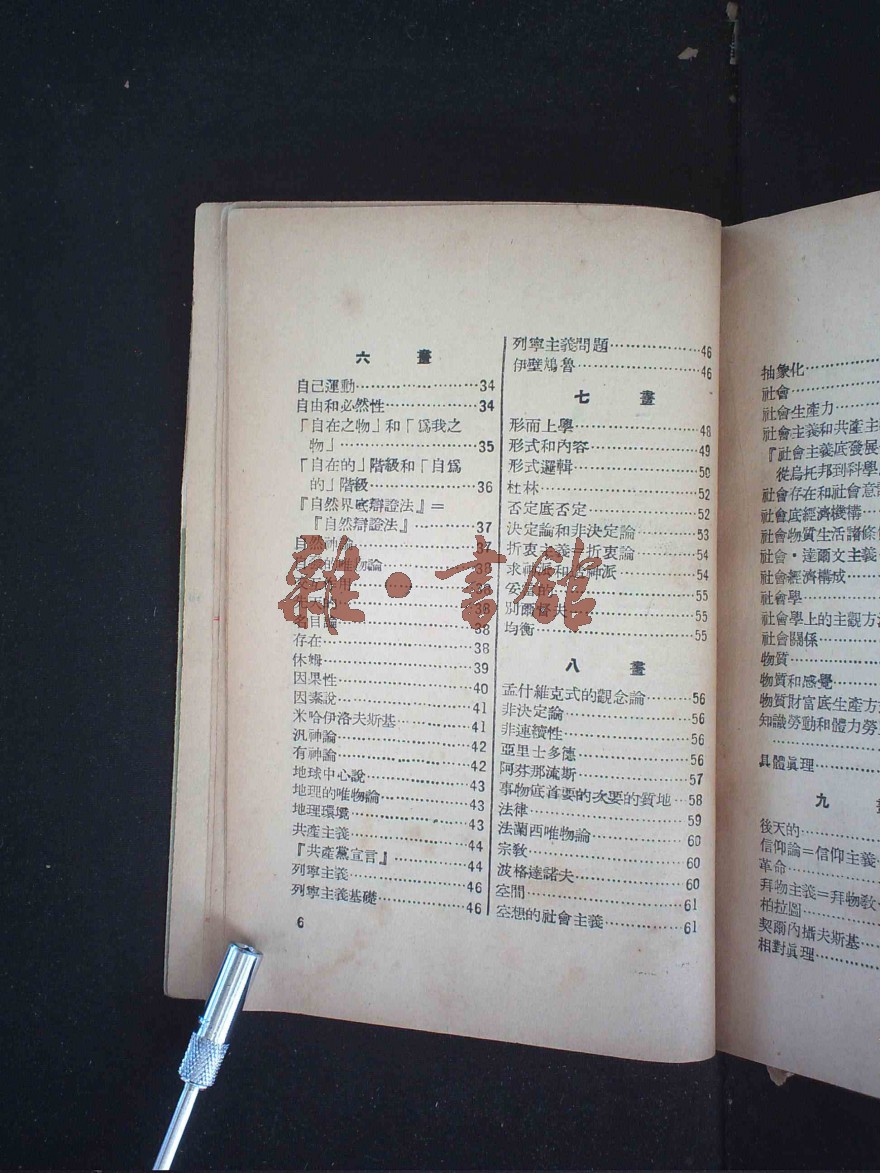 六 畫
自己運動……34
自由和必然性……34
「自在之物」和「爲我之
物」……35
「自在的」階級和「自爲
的」階級……36
『自然界底辯證法』＝
『自然辯證法』……37
自然神論……37
唯物論……38
38
先天的……38
名目論……38
存在……38
休姆……39
因果性……40
因素說……41
米哈伊洛夫斯基……41
汎神論……42
有神論……42
地球中心說……43
地理的唯物論……43
地理環境……43
共產主義……44
『共產黨宣言』……44
列寧主義……46
列寧主義基礎……46
6
列寧主義問題……46
伊壁鳩魯……46
七 畫
形而上學……48
形式和內容……49
形式邏輯……50
杜林……52
否定底否定……52
決定論和非決定論……53
折衷主義＝折衷論……54
求神派和造神派……54
55
別爾督夫……55
均衡……55
八 畫
孟什維克式的觀念論……56
非決定論……56
非連續性……56
亞里士多德……56
阿芬那流斯……57
事物底首要的次要的質地…58
法律……59
法蘭西唯物論……60
宗教……60
波格達諾夫……60
空間……61
空想的社會主義……61
抽象化……
社會……
社會生產力……
社會主義和共產主
『社會主義底發展
從烏托邦到科學
社會存在和社會意識
社會底經濟機構……
社會物質生活諸條件
社會・達爾文主義…
社會經濟構成……
社會學……
社會學上的主觀方法
社會關係……
物質……
物質和感覺……
物質財富底生產方
知識勞動和體力勞
……
具體眞理……
九 畫
後天的……
信仰論＝信仰主義…
革命……
拜物主義＝拜物教…
柏拉圖……
契爾內攝夫斯基……
相對眞理……
雜・書館